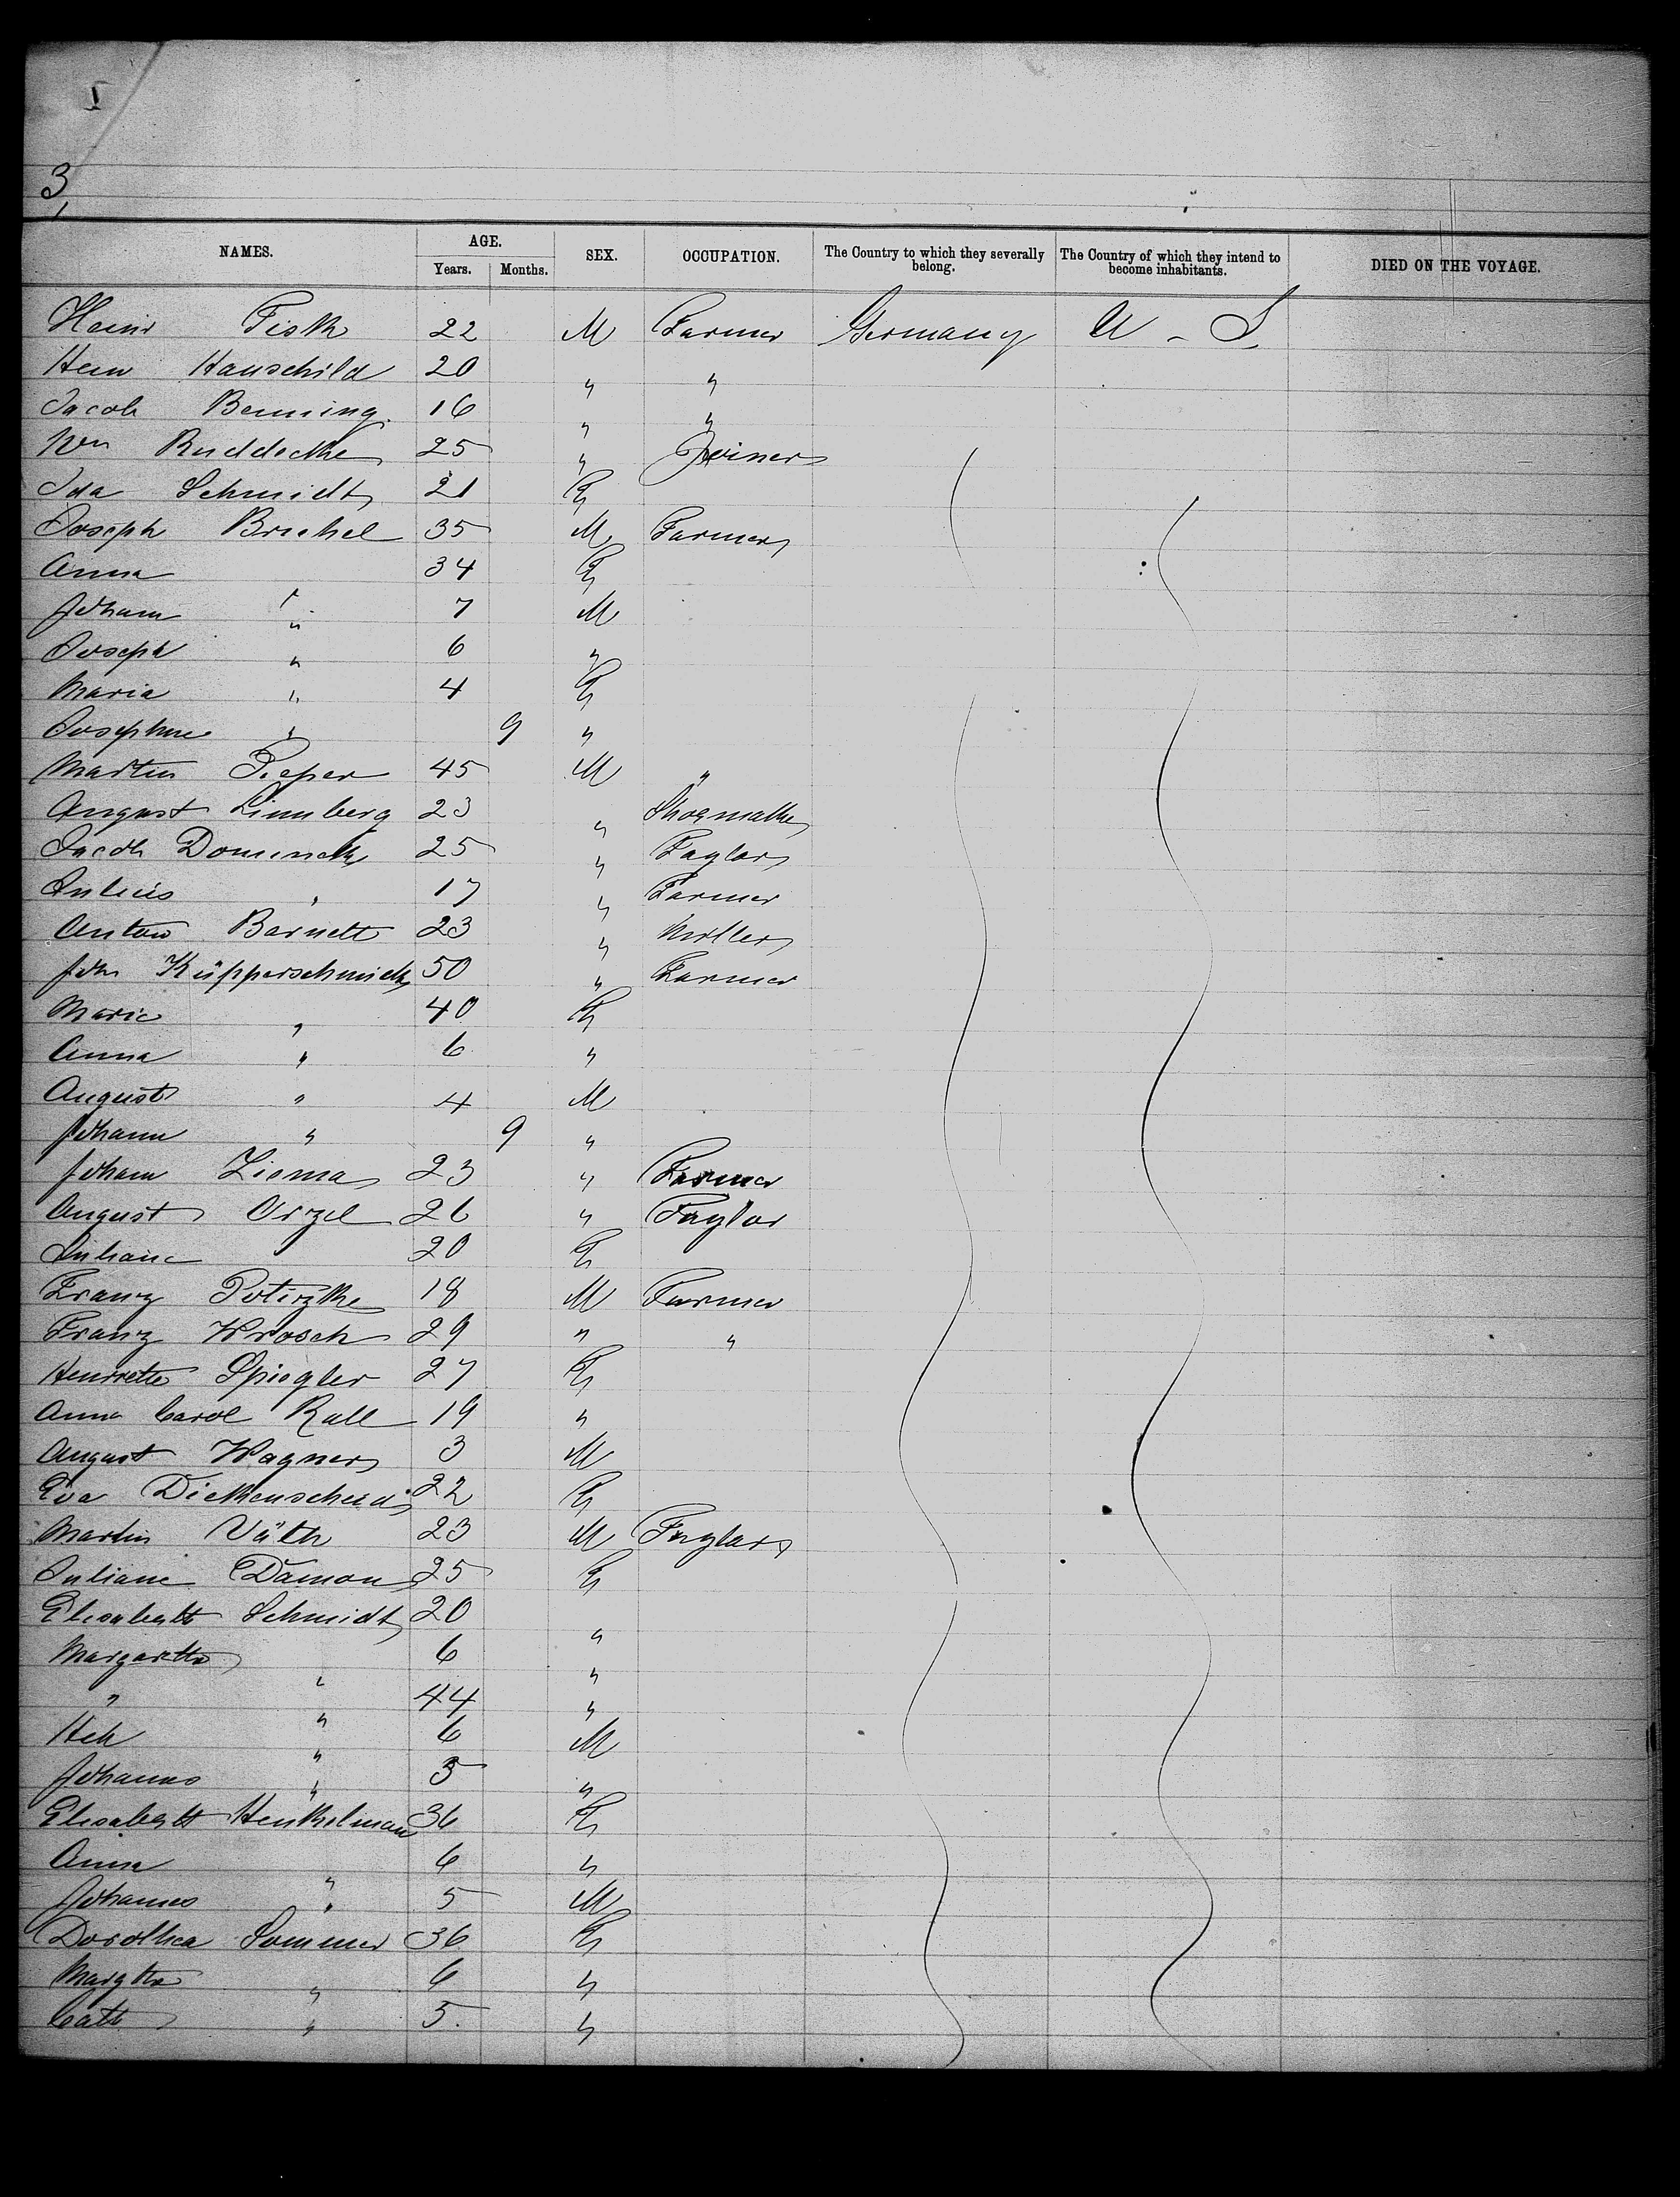 3
NAMES. AGE. SEX. OCCUPATION. The Country to which they severally belong. The Country of which they intend to become inhabitants. DIED ON THE VOYAGE.
Years. Months.
Heinr Fisk 22 M Farmer Germany U - S
Hein Hauschild 20 " "
Jacob Benning 16 " "
Wm Ruddecke 25 " Joiner
Ida Schmidt 21 F
Joseph Brickel 35 M Farmer
Anna 34 F
Johann " 7 M
Joseph " 6 "
Maria " 4 F
Josephine " 9 "
Martin Pieper 45 M "
August Linnberg 23 " Shoemaker
Jacob Dominick 25 " Taylor
Julius " 17 " Farmer
Anton Barnett 23 " Miller
Joh Küpperschmidt 50 " Farmer
Marie " 40 F
Anna " 6 "
August " 4 M
Johann " 9 "
Johann Ziema 23 " Farmer
August Orzel 26 " Taylor
Juliane 20 F
Franz Potizke 18 M Farmer
Franz Wrosch 29 " "
Henriette Spiegler 27 F
Anna Carol Rall 19 "
August Wagner 3 M
Eva Dickenscheid 22 F
Martin Väth 23 M Taylor
Juliane Damon 25 F
Elisabeth Schmidt 20 "
Margaretha " 6 "
" " 44 "
Hch " 6 M
Johannes " 5 "
Elisabeth Henkelman 36 F
Anna " 6 "
Johannes " 5 M
Dorothea Sommer 36 F
Margtha " 6 "
Cath " 5 "